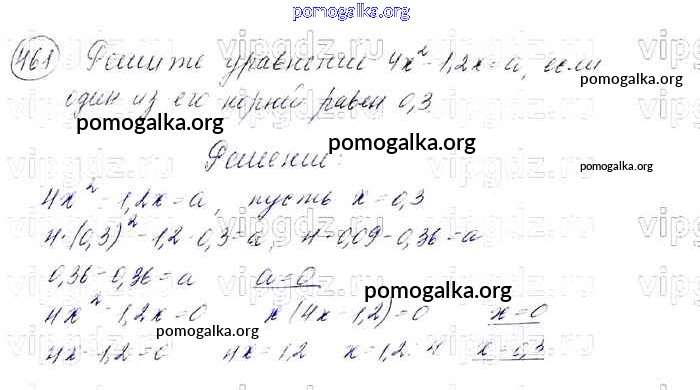 pomogalka.org
461 Решите уравнение 4x² - 1,2x = a, если
один из его корней равен 0,3.
pomogalka.org
pomogalka.org
pomogalka.org
Решение:
pomogalka.org
4x² - 1,2x = a, пусть x = 0,3
4·(0,3)² - 1,2·0,3 = a, 4·0,09 - 0,36 = a
0,36 - 0,36 = a a = 0
pomogalka.org
4x² - 1,2x = 0 x(4x - 1,2) = 0 x = 0
pomogalka.org
pomogalka.org
4x - 1,2 = 0 4x = 1,2 x = 1,2 : 4 x = 0,3
pomogalka.org